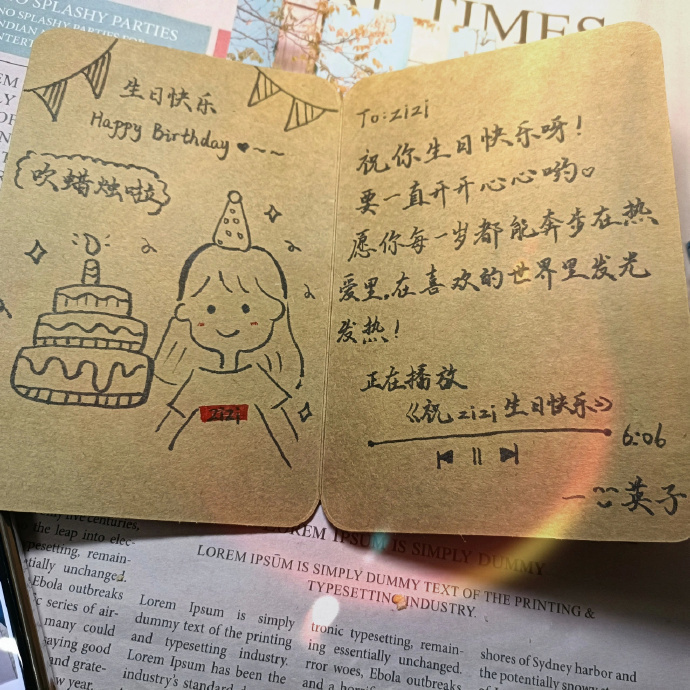 NO SPLASHY PARTIES
NO SPLASHY PARTIES FOR
TIMES
生日快乐
Happy Birthday
吹蜡烛啦
zizj
To:zizj
祝你生日快乐呀!
要一直开开心心哟。
愿你每一岁都能奔步在热
爱里,在喜欢的世界里发光
发热!
正在播放
《祝zizj生日快乐》
6:06
一英子
five centuries,
the leap into elec-
typesetting, remain-
tially unchanged.
Ebola outbreaks
series of air-
many could
saying good
and grate-
year.
LOREM IPSUM IS SIMPLY DUMMY
LOREM IPSŪM IS SIMPLY DUMMY TEXT OF THE PRINTING &
TYPESETTING INDUSTRY.
Lorem Ipsum is simply
dummy text of the printing
and typesetting industry.
Lorem Ipsum has been the
industry's standard
tronic typesetting, remain-
ing essentially unchanged.
rror woes, Ebola outbreaks
and a
shores of Sydney harbor and
the potentially snowy